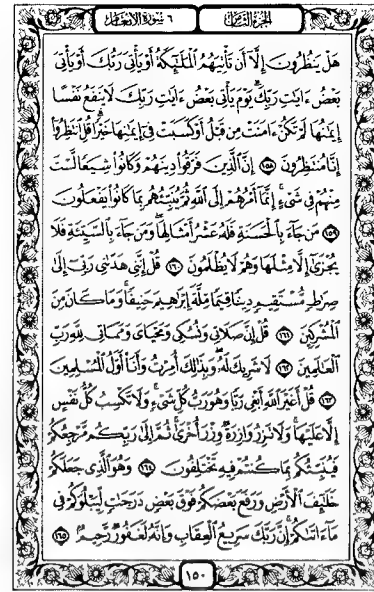 الجزء الثامن
٦ سورة الأنعام
هَلْ يَنظُرُونَ إِلَّا أَن تَأْتِيَهُمُ الْمَلَٰٓئِكَةُ أَوْ يَأْتِىَ رَبُّكَ أَوْ يَأْتِىَ
بَعْضُ ءَايَٰتِ رَبِّكَ يَوْمَ يَأْتِى بَعْضُ ءَايَٰتِ رَبِّكَ لَا يَنفَعُ نَفْسًا
إِيمَٰنُهَا لَمْ تَكُنْ ءَامَنَتْ مِن قَبْلُ أَوْ كَسَبَتْ فِىٓ إِيمَٰنِهَا خَيْرًا قُلِ انتَظِرُوٓا
إِنَّا مُنتَظِرُونَ ١٥٨ إِنَّ الَّذِينَ فَرَّقُوا دِينَهُمْ وَكَانُوا شِيَعًا لَّسْتَ
مِنْهُمْ فِى شَىْءٍ إِنَّمَآ أَمْرُهُمْ إِلَى اللَّهِ ثُمَّ يُنَبِّئُهُم بِمَا كَانُوا يَفْعَلُونَ
١٥٩ مَن جَآءَ بِالْحَسَنَةِ فَلَهُ عَشْرُ أَمْثَالِهَا وَمَن جَآءَ بِالسَّيِّئَةِ فَلَا
يُجْزَىٰٓ إِلَّا مِثْلَهَا وَهُمْ لَا يُظْلَمُونَ ١٦٠ قُلْ إِنَّنِى هَدَىٰنِى رَبِّىٓ إِلَىٰ
صِرَٰطٍ مُّسْتَقِيمٍ دِينًا قِيَمًا مِّلَّةَ إِبْرَٰهِيمَ حَنِيفًا وَمَا كَانَ مِنَ
الْمُشْرِكِينَ ١٦١ قُلْ إِنَّ صَلَاتِى وَنُسُكِى وَمَحْيَاىَ وَمَمَاتِى لِلَّهِ رَبِّ
الْعَٰلَمِينَ ١٦٢ لَا شَرِيكَ لَهُۥ وَبِذَٰلِكَ أُمِرْتُ وَأَنَا۠ أَوَّلُ الْمُسْلِمِينَ
١٦٣ قُلْ أَغَيْرَ اللَّهِ أَبْغِى رَبًّا وَهُوَ رَبُّ كُلِّ شَىْءٍ وَلَا تَكْسِبُ كُلُّ نَفْسٍ
إِلَّا عَلَيْهَا وَلَا تَزِرُ وَازِرَةٌ وِزْرَ أُخْرَىٰ ثُمَّ إِلَىٰ رَبِّكُم مَّرْجِعُكُمْ
فَيُنَبِّئُكُم بِمَا كُنتُمْ فِيهِ تَخْتَلِفُونَ ١٦٤ وَهُوَ الَّذِى جَعَلَكُمْ
خَلَٰٓئِفَ الْأَرْضِ وَرَفَعَ بَعْضَكُمْ فَوْقَ بَعْضٍ دَرَجَٰتٍ لِّيَبْلُوَكُمْ فِى
مَآ ءَاتَىٰكُمْ إِنَّ رَبَّكَ سَرِيعُ الْعِقَابِ وَإِنَّهُۥ لَغَفُورٌ رَّحِيمٌ ١٦٥
١٥٠